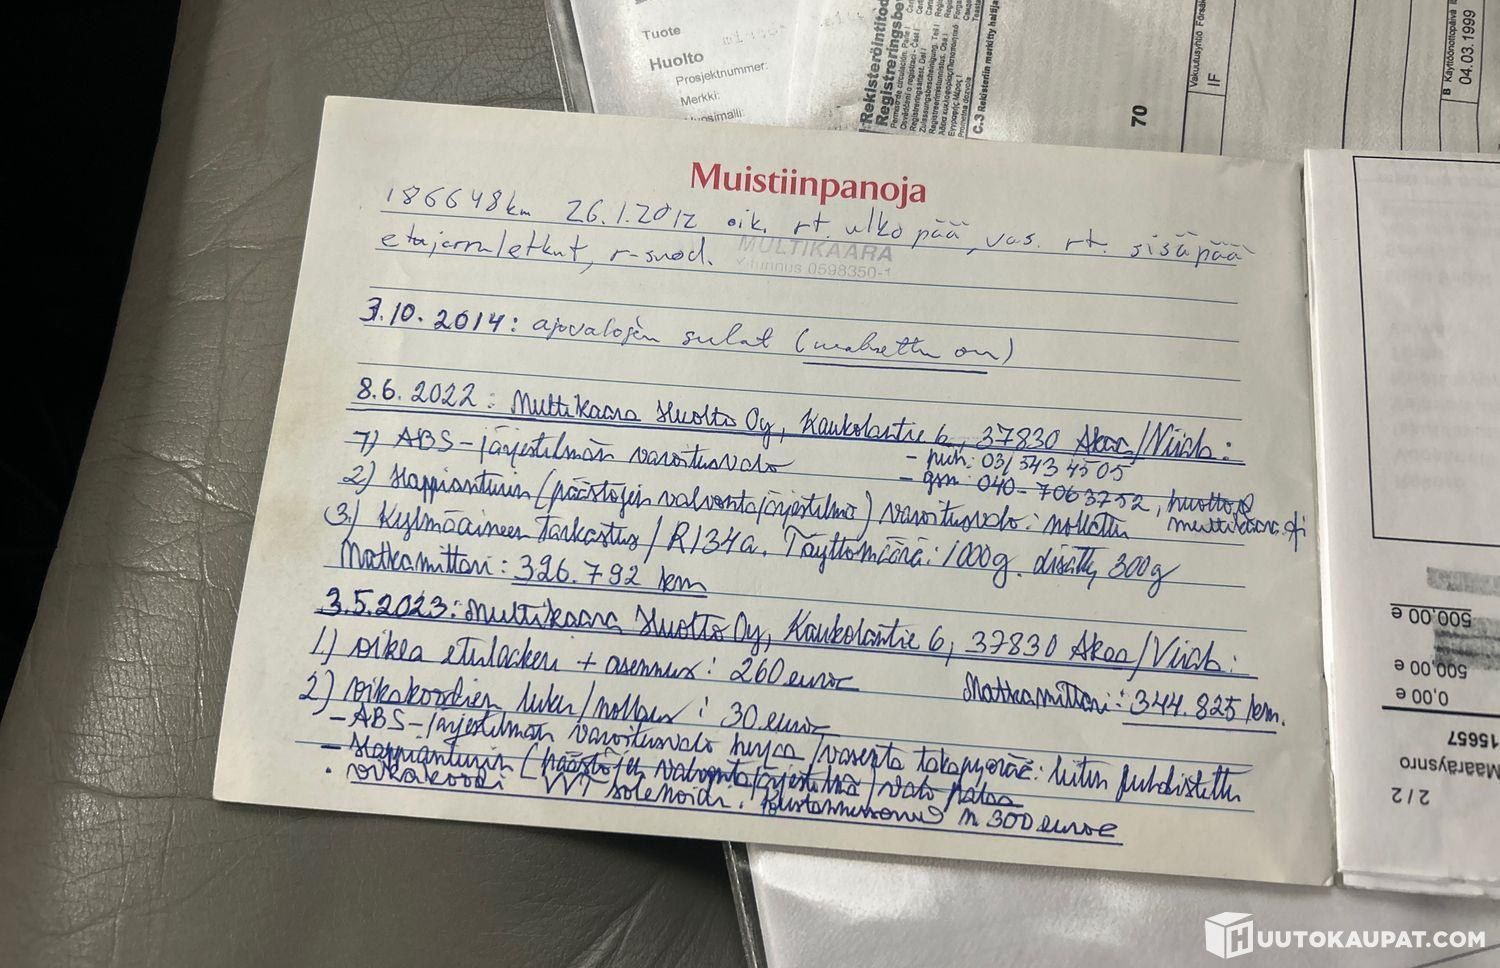 Tuote
Huolto
Prosjektnummer:
Merkki:
Rekisteröintitod
Registreringsbe
C.3 Rekisteriin merkitty haltija
70
Vakuutusyhtiö
IF
B Käyttöönottopäivä
04.03.1999
Muistiinpanoja
186648km 26.1.2012 oik. rt. ulko pää, vas. rt. sisäpää
etujarruletkut, r-suod.
MULTIKAARA
Y-tunnus 0598350-1
3.10.2014: ajovalojen sulat (maksettu on)
8.6.2022: Multikaara Huolto Oy, Kaukolantie 6, 37830 Akaa/Viiala:
- puh: 03/543 4505
1) ABS-järjestelmän varoitusvalo
- gsm: 040-7063752, huolto@
multikaara.fi
2) Happianturin (päästöjen valvontajärjestelmä) varoitusvalo: nollattu
3.) Kylmäaineen tarkastus/R134a. Täyttömäärä: 1000g. lisätty 300g
Matkamittari: 326.792 km
3.5.2023: Multikaara Huolto Oy, Kaukolantie 6, 37830 Akaa/Viiala:
1) oikea etulaakeri + asennus: 260 euroa
Matkamittari: 344.825 km.
2) vikakoodien luku/nollaus: 30 euroa
- ABS-järjestelmän varoitusvalo huijaa/vasenta takapyörää: liitin puhdistettu
- Happianturin (päästöjen valvontajärjestelmä/valo palaa
· vikakoodi VVT solenoidi. kustannusarvio n 300 euroa
500,00 e
500,00 e
0,00 e
15657
Määräysnro
2/2
HUUTOKAUPAT.COM